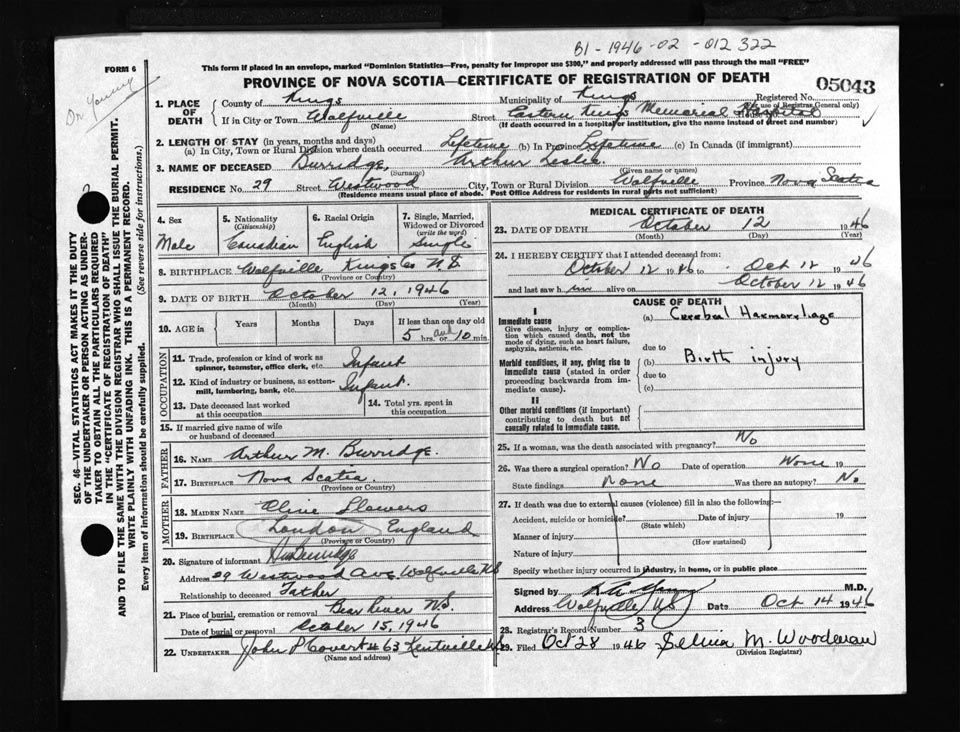 B1-1946-02-012322
FORM 6
This form if placed in an envelope, marked "Dominion Statistics—Free, penalty for improper use $300," and properly addressed will pass through the mail "FREE"
PROVINCE OF NOVA SCOTIA—CERTIFICATE OF REGISTRATION OF DEATH
05043
Dr Young
1. PLACE OF DEATH County of Kings Municipality of Kings Registered No. (For use of Registrar General only)
If in City or Town Wolfville (Name) Street Eastern Kings Memorial Hospital (If death occurred in a hospital or institution, give the name instead of street and number)
2. LENGTH OF STAY (in years, months and days)
(a) In City, Town or Rural Division where death occurred Lifetime (b) In Province Lifetime (c) In Canada (if immigrant)
3. NAME OF DECEASED Burridge, (Surname) Arthur Leslie. (Given name or names)
RESIDENCE No. 29 Street Westwood City, Town or Rural Division Wolfville Province Nova Scotia
(Residence means usual place of abode. Post Office Address for residents in rural parts not sufficient)
4. Sex Male
5. Nationality (Citizenship) Canadian
6. Racial Origin English
7. Single, Married, Widowed or Divorced (write the word) Single
8. BIRTHPLACE Wolfville Kings Co N.S. (Province or Country)
9. DATE OF BIRTH October 12, 1946 (Month) (Day) (Year)
10. AGE in Years Months Days If less than one day old 5 hrs. and or 10 min.
OCCUPATION
11. Trade, profession or kind of work as spinner, teamster, office clerk, etc. Infant
12. Kind of industry or business, as cotton-mill, lumbering, bank, etc. Infant.
13. Date deceased last worked at this occupation
14. Total yrs. spent in this occupation
15. If married give name of wife or husband of deceased
FATHER
16. NAME Arthur M. Burridge.
17. BIRTHPLACE Nova Scotia (Province or Country)
MOTHER
18. MAIDEN NAME Olive Flowers
19. BIRTHPLACE London England (Province or Country)
20. Signature of informant Burridge
Address 29 Westwood Ave Wolfville N.S
Relationship to deceased Father
21. Place of burial, cremation or removal Bear River N.S.
Date of burial or removal October 15, 1946
22. UNDERTAKER John P Covert #63 Kentville N.S (Name and address)
MEDICAL CERTIFICATE OF DEATH
23. DATE OF DEATH October 12 1946 (Month) (Day) (Year)
24. I HEREBY CERTIFY that I attended deceased from:
October 12 1946 to Oct 12 1946
and last saw him alive on October 12 1946
CAUSE OF DEATH
I
Immediate cause
Give disease, injury or complication which caused death, not the mode of dying, such as heart failure, asphyxia, asthenia, etc.
(a) Cerebral Haemorrhage
due to
Morbid conditions, if any, giving rise to immediate cause (stated in order proceeding backwards from immediate cause).
(b) Birth injury
due to
(c)
II
Other morbid conditions (if important) contributing to death but not causally related to immediate cause.
25. If a woman, was the death associated with pregnancy? No
26. Was there a surgical operation? No Date of operation None 19
State findings None Was there an autopsy? No
27. If death was due to external causes (violence) fill in also the following:—
Accident, suicide or homicide? (State which) Date of injury 19
Manner of injury (How sustained)
Nature of injury
Specify whether injury occurred in industry, in home, or in public place
Signed by M.D.
Address Wolfville, N.S. Date Oct 14 1946
28. Registrar's Record Number 3
29. Filed Oct 28 1946 M. (Division Registrar)
SEC. 46—VITAL STATISTICS ACT MAKES IT THE DUTY
OF THE UNDERTAKER OR PERSON ACTING AS UNDER-
TAKER TO OBTAIN ALL THE PARTICULARS REQUIRED
IN THE "CERTIFICATE OF REGISTRATION OF DEATH"
AND TO FILE THE SAME WITH THE DIVISION REGISTRAR WHO SHALL ISSUE THE BURIAL PERMIT.
WRITE PLAINLY WITH UNFADING INK. THIS IS A PERMANENT RECORD.
Every item of information should be carefully supplied. (See reverse side for instructions.)